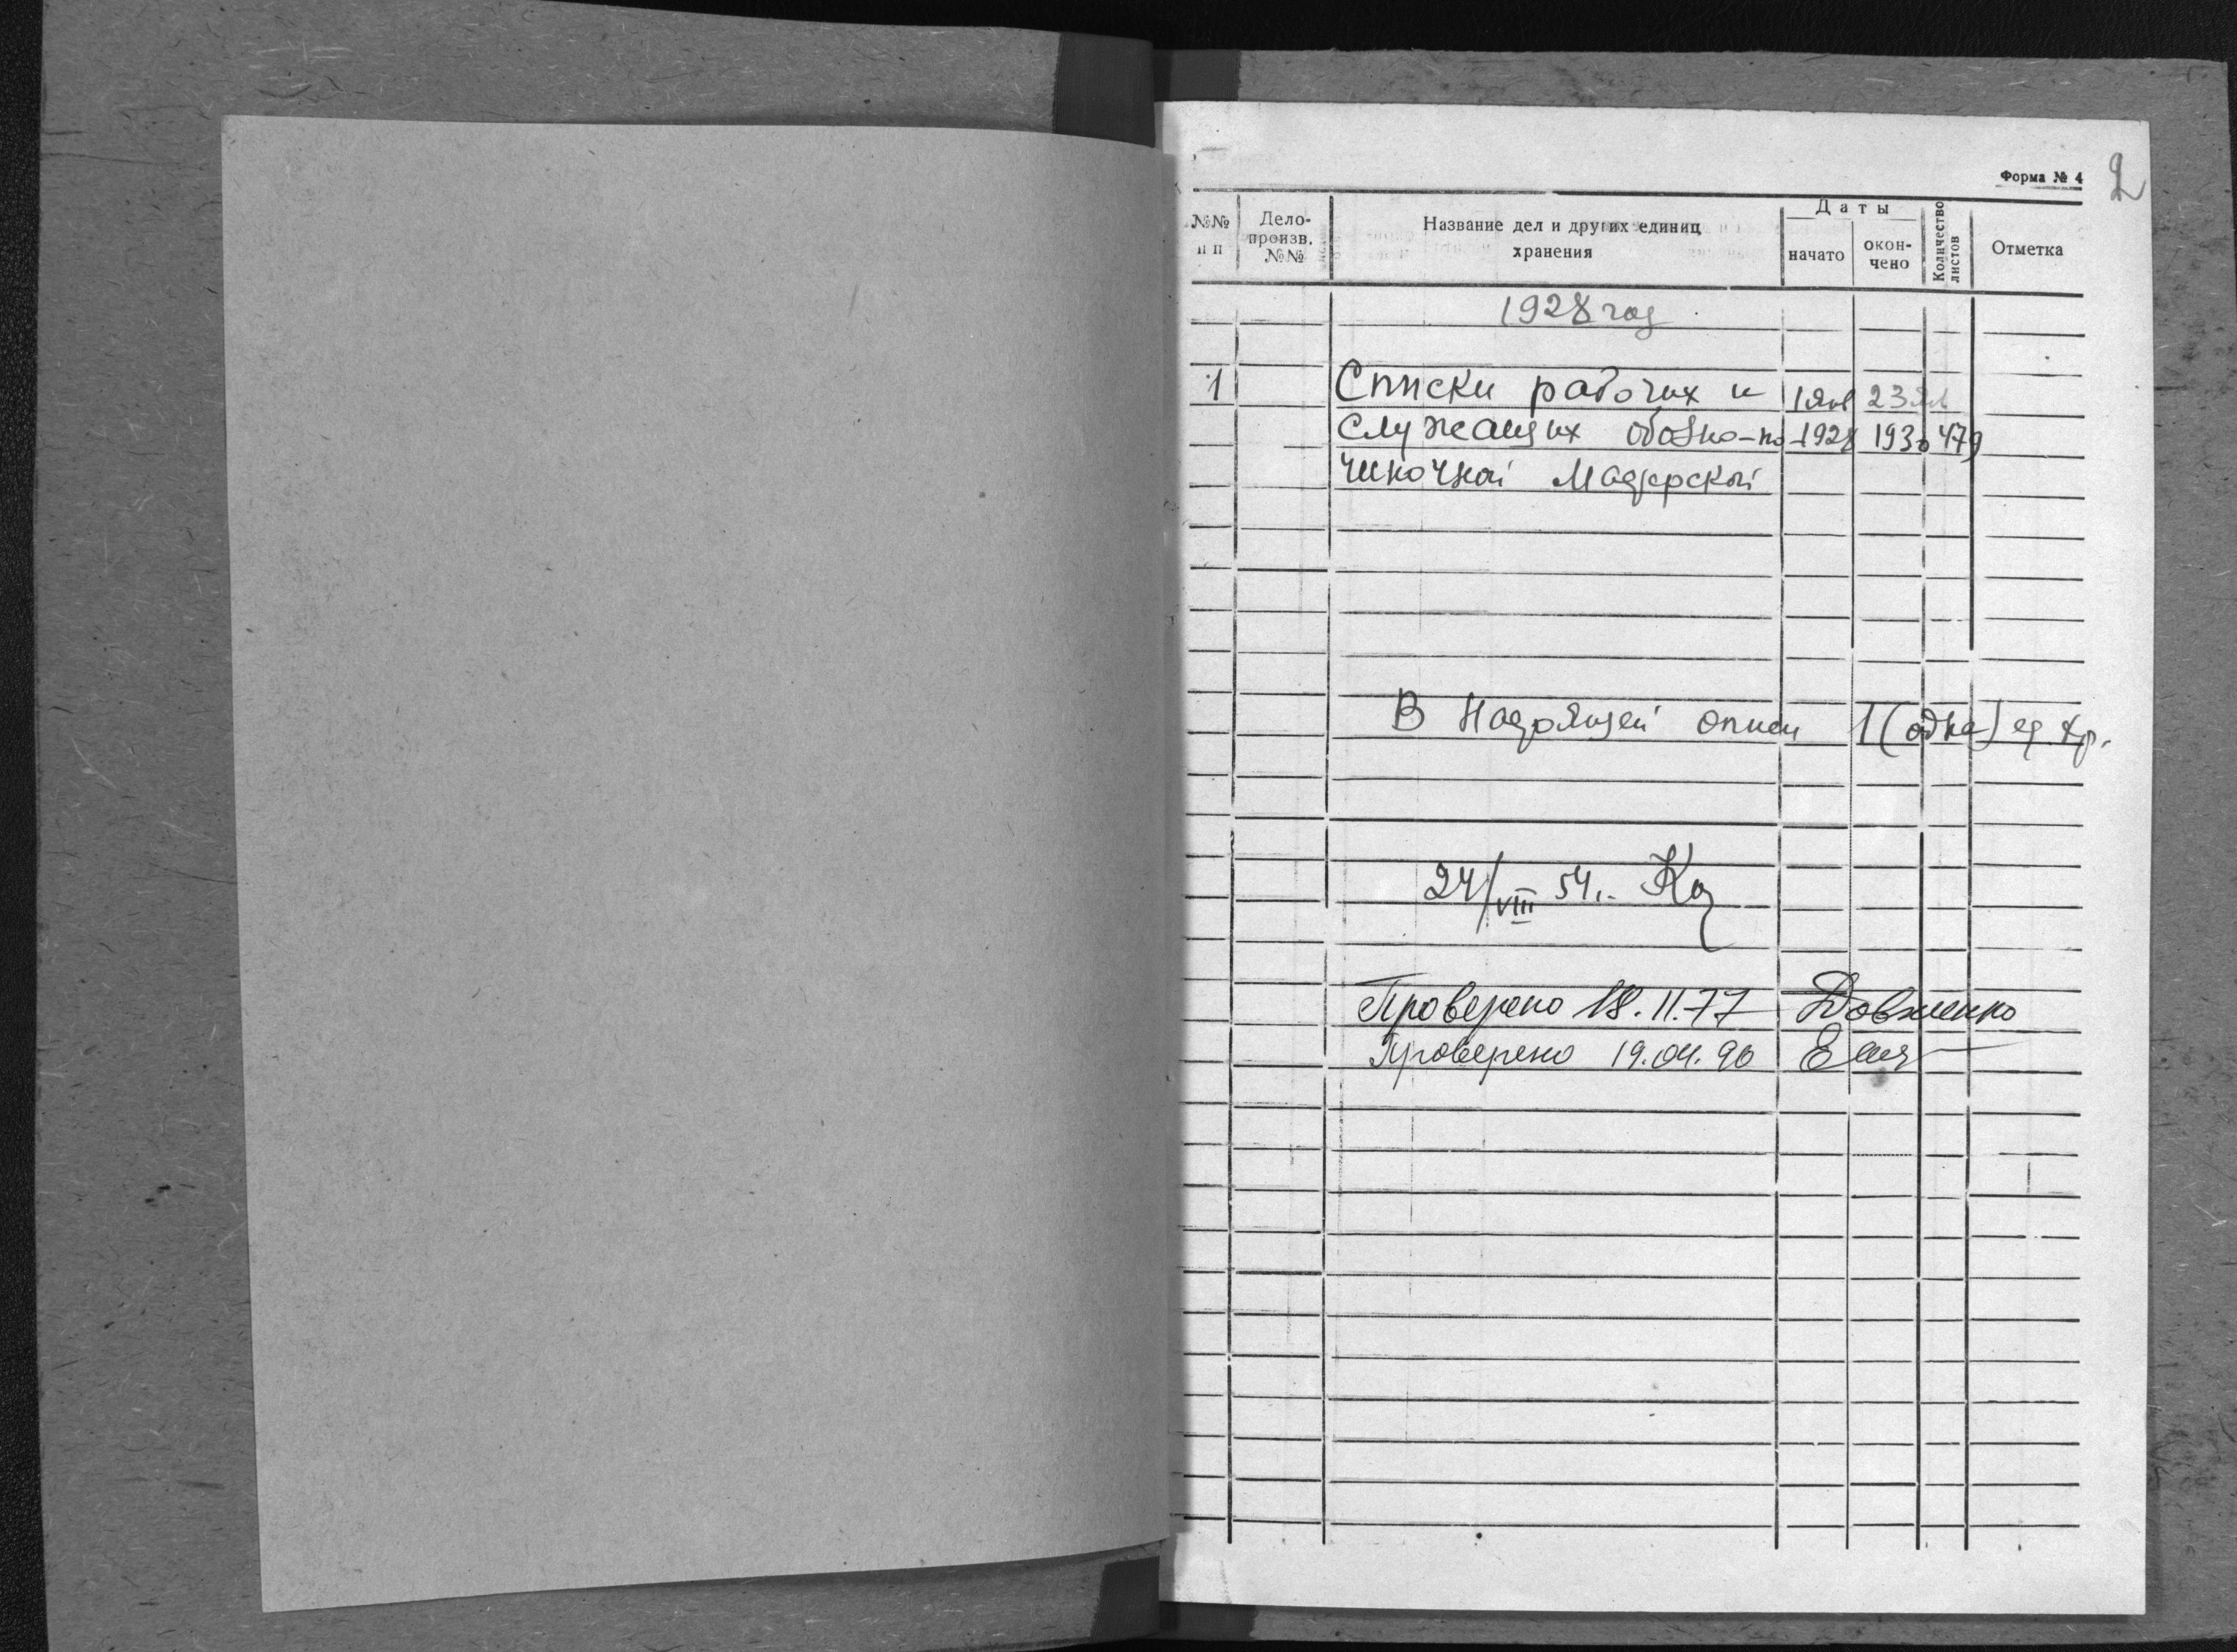 Форма № 4
2
№№ п п
Дело-произв. №№
Название дел и других единиц хранения
Даты
начато
окон-чено
Количество листов
Отметка
1928 год
1 Списки рабочих и 1 янв 23
служащих обозно-по- 1928 1930 479
чиночной мастерской
В настоящей описи 1 (одна) ед хр.
24/VIII 54г.
Проверено 18.11.77 Довженко
Проверено 19.04.90